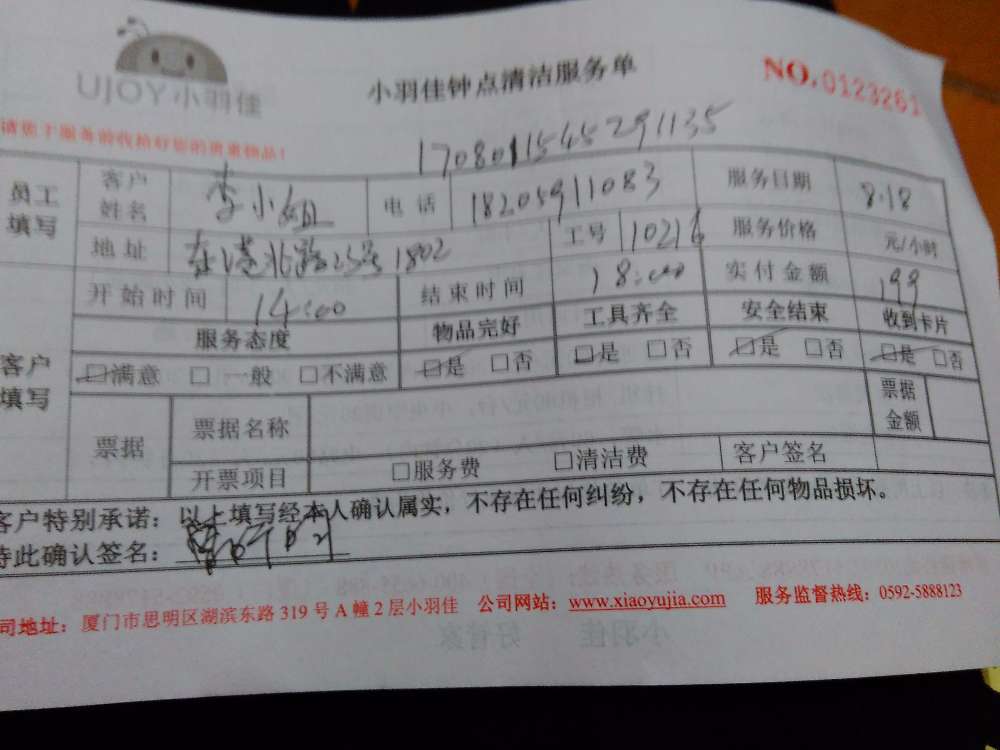 UJOY小羽佳
小羽佳钟点清洁服务单
NO.0123261
请您于服务前收拾好您的贵重物品!
17080115145291135
员工填写
客户姓名 李小姐 电话 18205911083 服务日期 8.18
地址 东港北路23号1802 工号 110216 服务价格 元/小时
开始时间 14:00 结束时间 18:00 实付金额 199
客户填写
服务态度 物品完好 工具齐全 安全结束 收到卡片
☑满意 □一般 □不满意 ☑是 □否 ☑是 □否 ☑是 □否 ☑是 □否
票据 票据名称 票据金额
开票项目 □服务费 □清洁费 客户签名
客户特别承诺：以上填写经本人确认属实，不存在任何纠纷，不存在任何物品损坏。
特此确认签名：
司地址：厦门市思明区湖滨东路 319 号 A 幢 2 层小羽佳 公司网站：www.xiaoyujia.com 服务监督热线：0592-5888123